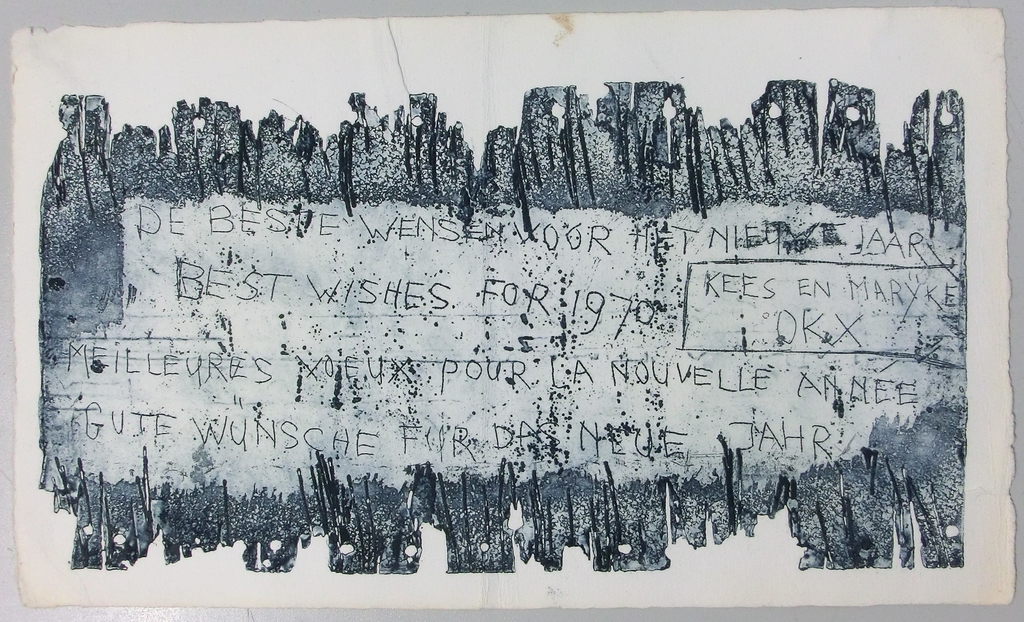 DE BESTE WENSEN VOOR HET NIEUWE JAAR
BEST WISHES FOR 1970
KEES EN MARYKE
OKX
MEILLEURES VOEUX POUR LA NOUVELLE ANNEE
GUTE WÜNSCHE FUR DAS NEUE JAHR